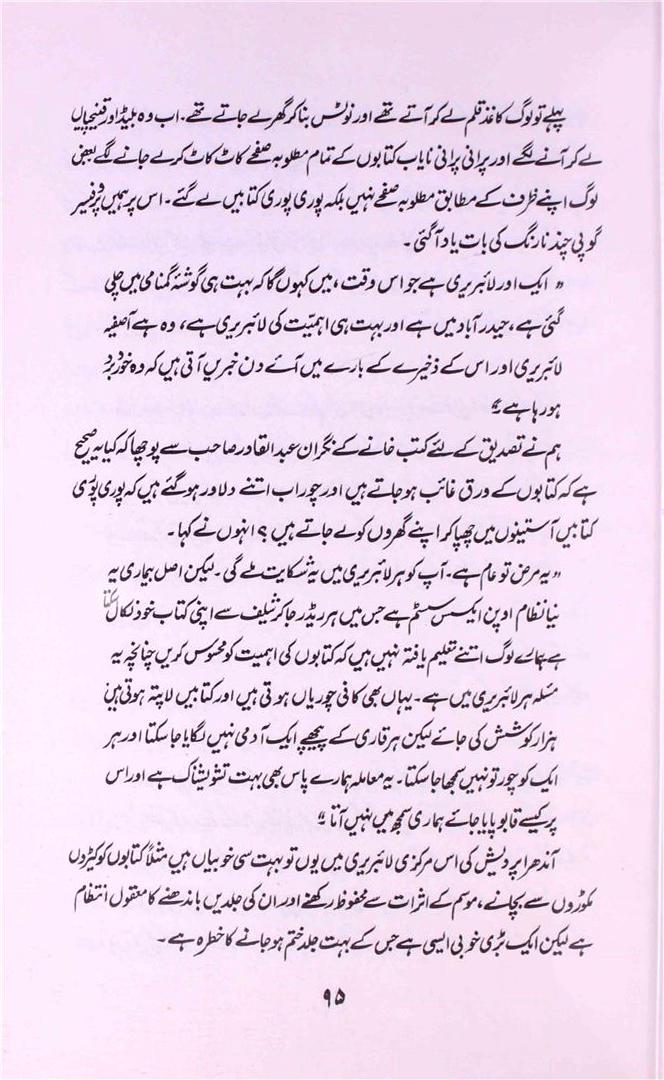 پہلے تو لوگ کاغذ قلم لے کر آتے تھے اور نوٹس بنا کر گھر لے جاتے تھے۔ اب وہ بلیڈ اور قینچیاں
لے کر آنے لگے اور پرانی پرانی نایاب کتابوں کے تمام مطلوبہ صفحے کاٹ کاٹ کر لے جانے لگے بعض
لوگ اپنے ظرف کے مطابق مطلوبہ صفحے نہیں بلکہ پوری پوری کتابیں لے گئے۔ اس پر ہمیں پروفیسر
گوپی چند نارنگ کی بات یاد آ گئی۔
"ایک اور لائبریری ہے جو اس وقت، میں کہوں گا کہ بہت ہی گوشۂ گمنامی میں چلی
گئی ہے، حیدرآباد میں ہے اور بہت ہی اہمیّت کی لائبریری ہے، وہ ہے آصفیہ
لائبریری اور اس کے ذخیرے کے بارے میں آئے دن خبریں آتی ہیں کہ وہ خورد برد
ہو رہا ہے"
ہم نے تصدیق کے لئے کتب خانے کے نگران عبدالقادر صاحب سے پوچھا کہ کیا یہ صحیح
ہے کہ کتابوں کے ورق غائب ہو جاتے ہیں اور چور اب اتنے دلاور ہو گئے ہیں کہ پوری پوری
کتابیں آستینوں میں چھپا کر اپنے گھروں کو لے جاتے ہیں؟ انہوں نے کہا۔
"یہ مرض تو عام ہے۔ آپ کو ہر لائبریری میں یہ شکایت ملے گی۔ لیکن اصل بیماری یہ
نیا نظام اوپن ایکسس سسٹم ہے جس میں ہر ریڈر جا کر شلف سے اپنی کتاب خود نکال سکتا
ہے ہمارے لوگ اتنے تعلیم یافتہ نہیں ہیں کہ کتابوں کی اہمیت کو محسوس کریں چنانچہ یہ
مسئلہ ہر لائبریری میں ہے۔ یہاں بھی کافی چوریاں ہوتی ہیں اور کتابیں لاپتہ ہوتی ہیں
ہزار کوشش کی جائے لیکن ہر قاری کے پیچھے ایک آدمی نہیں لگایا جا سکتا اور ہر
ایک کو چور تو نہیں سمجھا جا سکتا۔ یہ معاملہ ہمارے پاس بھی بہت تشویشناک ہے اور اس
پر کیسے قابو پایا جائے ہماری سمجھ میں نہیں آتا"
آندھرا پردیش کی اس مرکزی لائبریری میں یوں تو بہت سی خوبیاں ہیں مثلاً کتابوں کو کیڑوں
مکوڑوں سے بچانے، موسم کے اثرات سے محفوظ رکھنے اور ان کی جلدیں باندھنے کا معقول انتظام
ہے لیکن ایک بڑی خوبی ایسی ہے جس کے بہت جلد ختم ہو جانے کا خطرہ ہے۔
۹۵